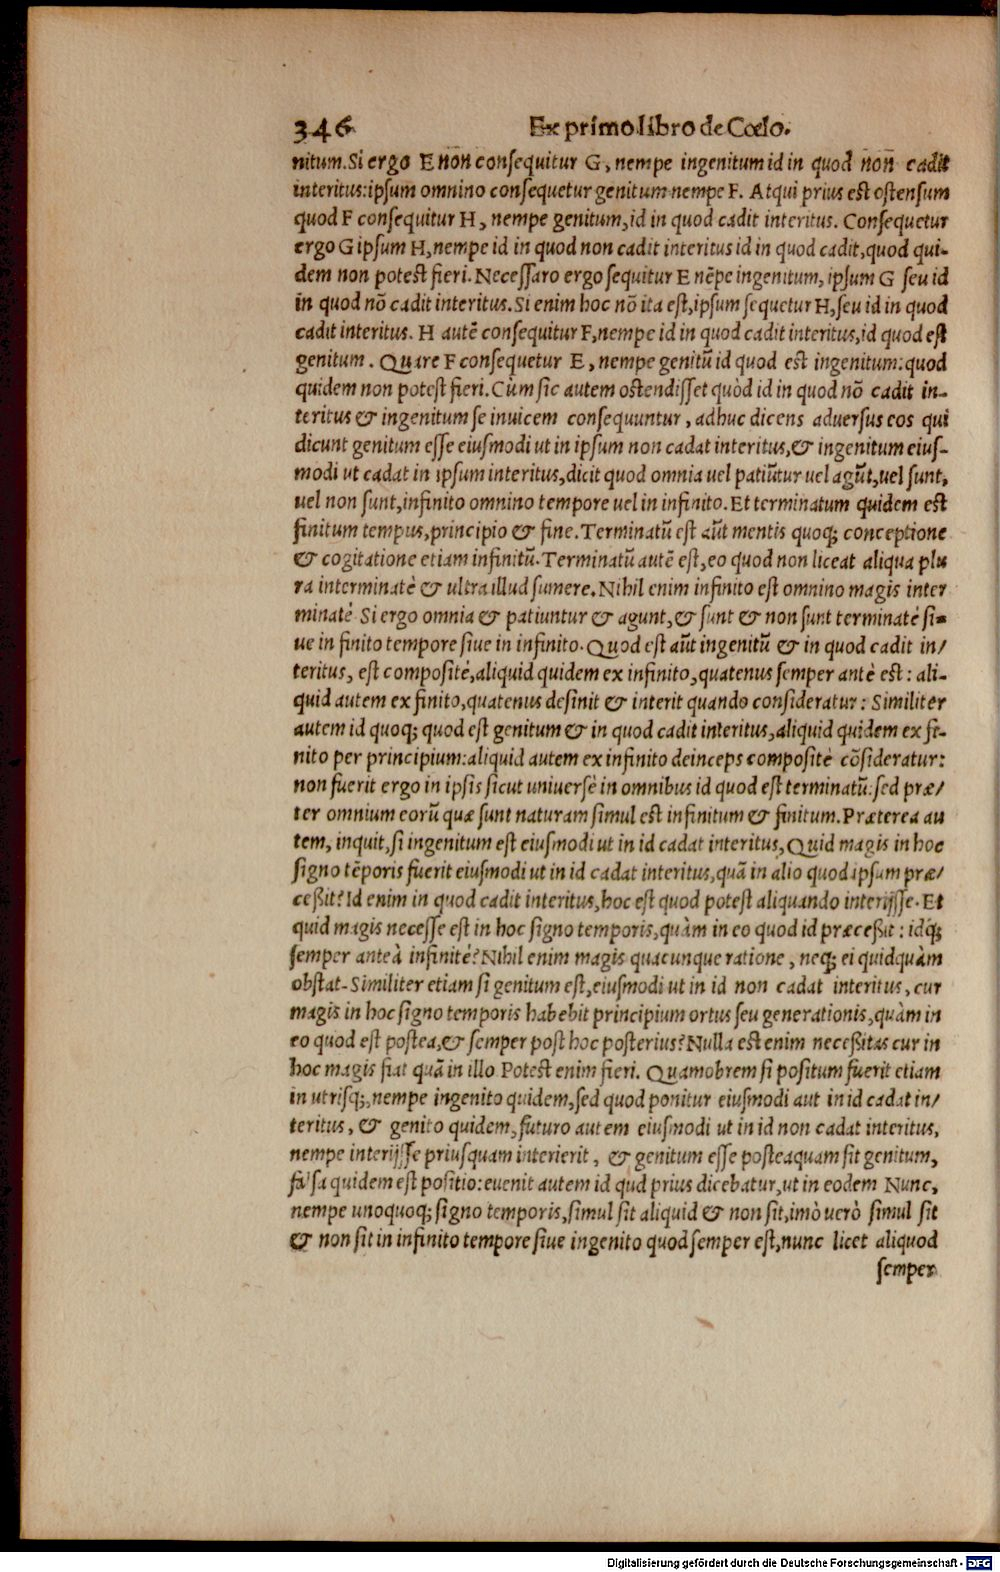 346 Ex primo libro de Cœlo.
nitum. Si ergo E nõn consequitur G, nempe ingenitum id in quod nõn cadit
interitus: ipsum omnino consequetur genitum nempe F. Atqui prius est ostensum
quod F consequitur H, nempe genitum, id in quod cadit interitus. Consequetur
ergo G ipsum H, nempe id in quod non cadit interitus id in quod cadit, quod qui-
dem non potest fieri. Necessaro ergo sequitur E nẽpe ingenitum, ipsum G seu id
in quod nõ cadit interitus. Si enim hoc nõ ita est, ipsum sequetur H, seu id in quod
cadit interitus. H autẽ consequitur F, nempe id in quod cadit interitus, id quod est
genitum. Quare F consequetur E, nempe genitũ id quod est ingenitum: quod
quidem non potest fieri. Cùm sic autem ostendisset quòd id in quod nõ cadit in-
teritus & ingenitum se inuicem consequuntur, adhuc dicens aduersus eos qui
dicunt genitum esse eiusmodi ut in ipsum non cadat interitus, & ingenitum eius-
modi ut cadat in ipsum interitus, dicit quod omnia uel patiũtur uel agũt, uel sunt,
uel non sunt, infinito omnino tempore uel in infinito. Et terminatum quidem est
finitum tempus, principio & fine. Terminatũ est aũt mentis quoq; conceptione
& cogitatione etiam infinitũ. Terminatũ autẽ est, eo quod non liceat aliqua plu
ra interminatè & ultra illud sumere. Nihil enim infinito est omnino magis inter
minatè Si ergo omnia & patiuntur & agunt, & sunt & non sunt terminatè si-
ue in finito tempore siue in infinito. Quod est aũt ingenitũ & in quod cadit in/
teritus, est compositè, aliquid quidem ex infinito, quatenus semper antè est: ali-
quid autem ex finito, quatenus desinit & interit quando consideratur: Similiter
autem id quoq; quod est genitum & in quod cadit interitus, aliquid quidem ex fi-
nito per principium: aliquid autem ex infinito deinceps compositè cõsideratur:
non fuerit ergo in ipsis sicut uniuersè in omnibus id quod est terminatũ: sed præ/
ter omnium eorũ quæ sunt naturam simul est infinitum & finitum. Præterea au
tem, inquit, si ingenitum est eiusmodi ut in id cadat interitus, Quid magis in hoc
signo tẽporis fuerit eiusmodi ut in id cadat interitus, quã in alio quod ipsum præ/
ceßit? Id enim in quod cadit interitus, hoc est quod potest aliquando interijsse. Et
quid magis necesse est in hoc signo temporis, quàm in eo quod id præceßit: idq́;
semper anteà infinitè? Nihil enim magis quacunque ratione, neq; ei quidquàm
obstat. Similiter etiam si genitum est, eiusmodi ut in id non cadat interitus, cur
magis in hoc signo temporis habebit principium ortus seu generationis, quàm in
eo quod est postea, & semper post hoc posterius? Nulla est enim neceßitas cur in
hoc magis fiat quã in illo Potest enim fieri. Quamobrem si positum fuerit etiam
in utrisq;, nempe ingenito quidem, sed quod ponitur eiusmodi aut in id cadat in/
teritus, & genito quidem, futuro autem eiusmodi ut in id non cadat interitus,
nempe interijsse priusquam interierit, & genitum esse posteaquam sit genitum,
falsa quidem est positio: euenit autem id qud prius dicebatur, ut in eodem Nunc,
nempe unoquoq; signo temporis, simul sit aliquid & non sit, imò uerò simul sit
& non sit in infinito tempore siue ingenito quod semper est, nunc licet aliquod
semper
Digitalisierung gefördert durch die Deutsche Forschungsgemeinschaft - DFG